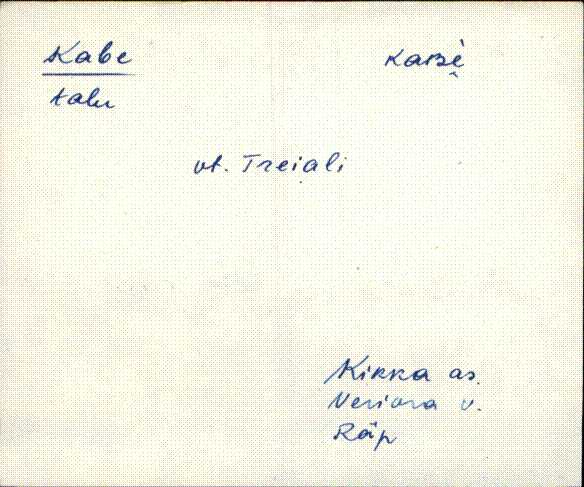 Kabe kaʙè̬
talu
vt. Treiali
Kikka as.
Veriora v.
Räp